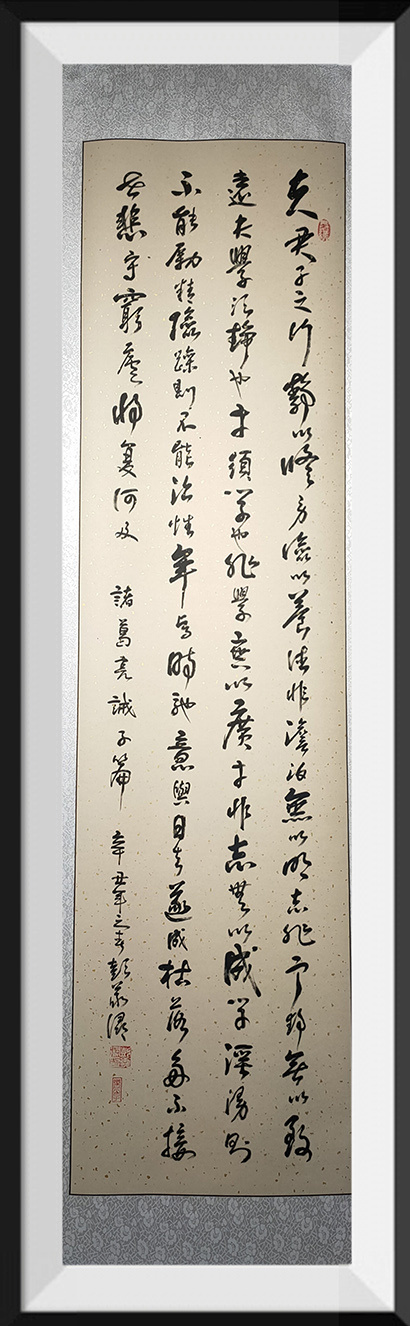 夫君子之行靜以修身儉以養德非澹泊無以明志非寧靜無以致
遠夫學須靜也才須學也非學無以廣才非志無以成學淫漫則
不能勵精險躁則不能治性年與時馳意與日去遂成枯落多不接
世悲守窮廬將復何及 諸葛亮誡子篇 辛丑年之春彭